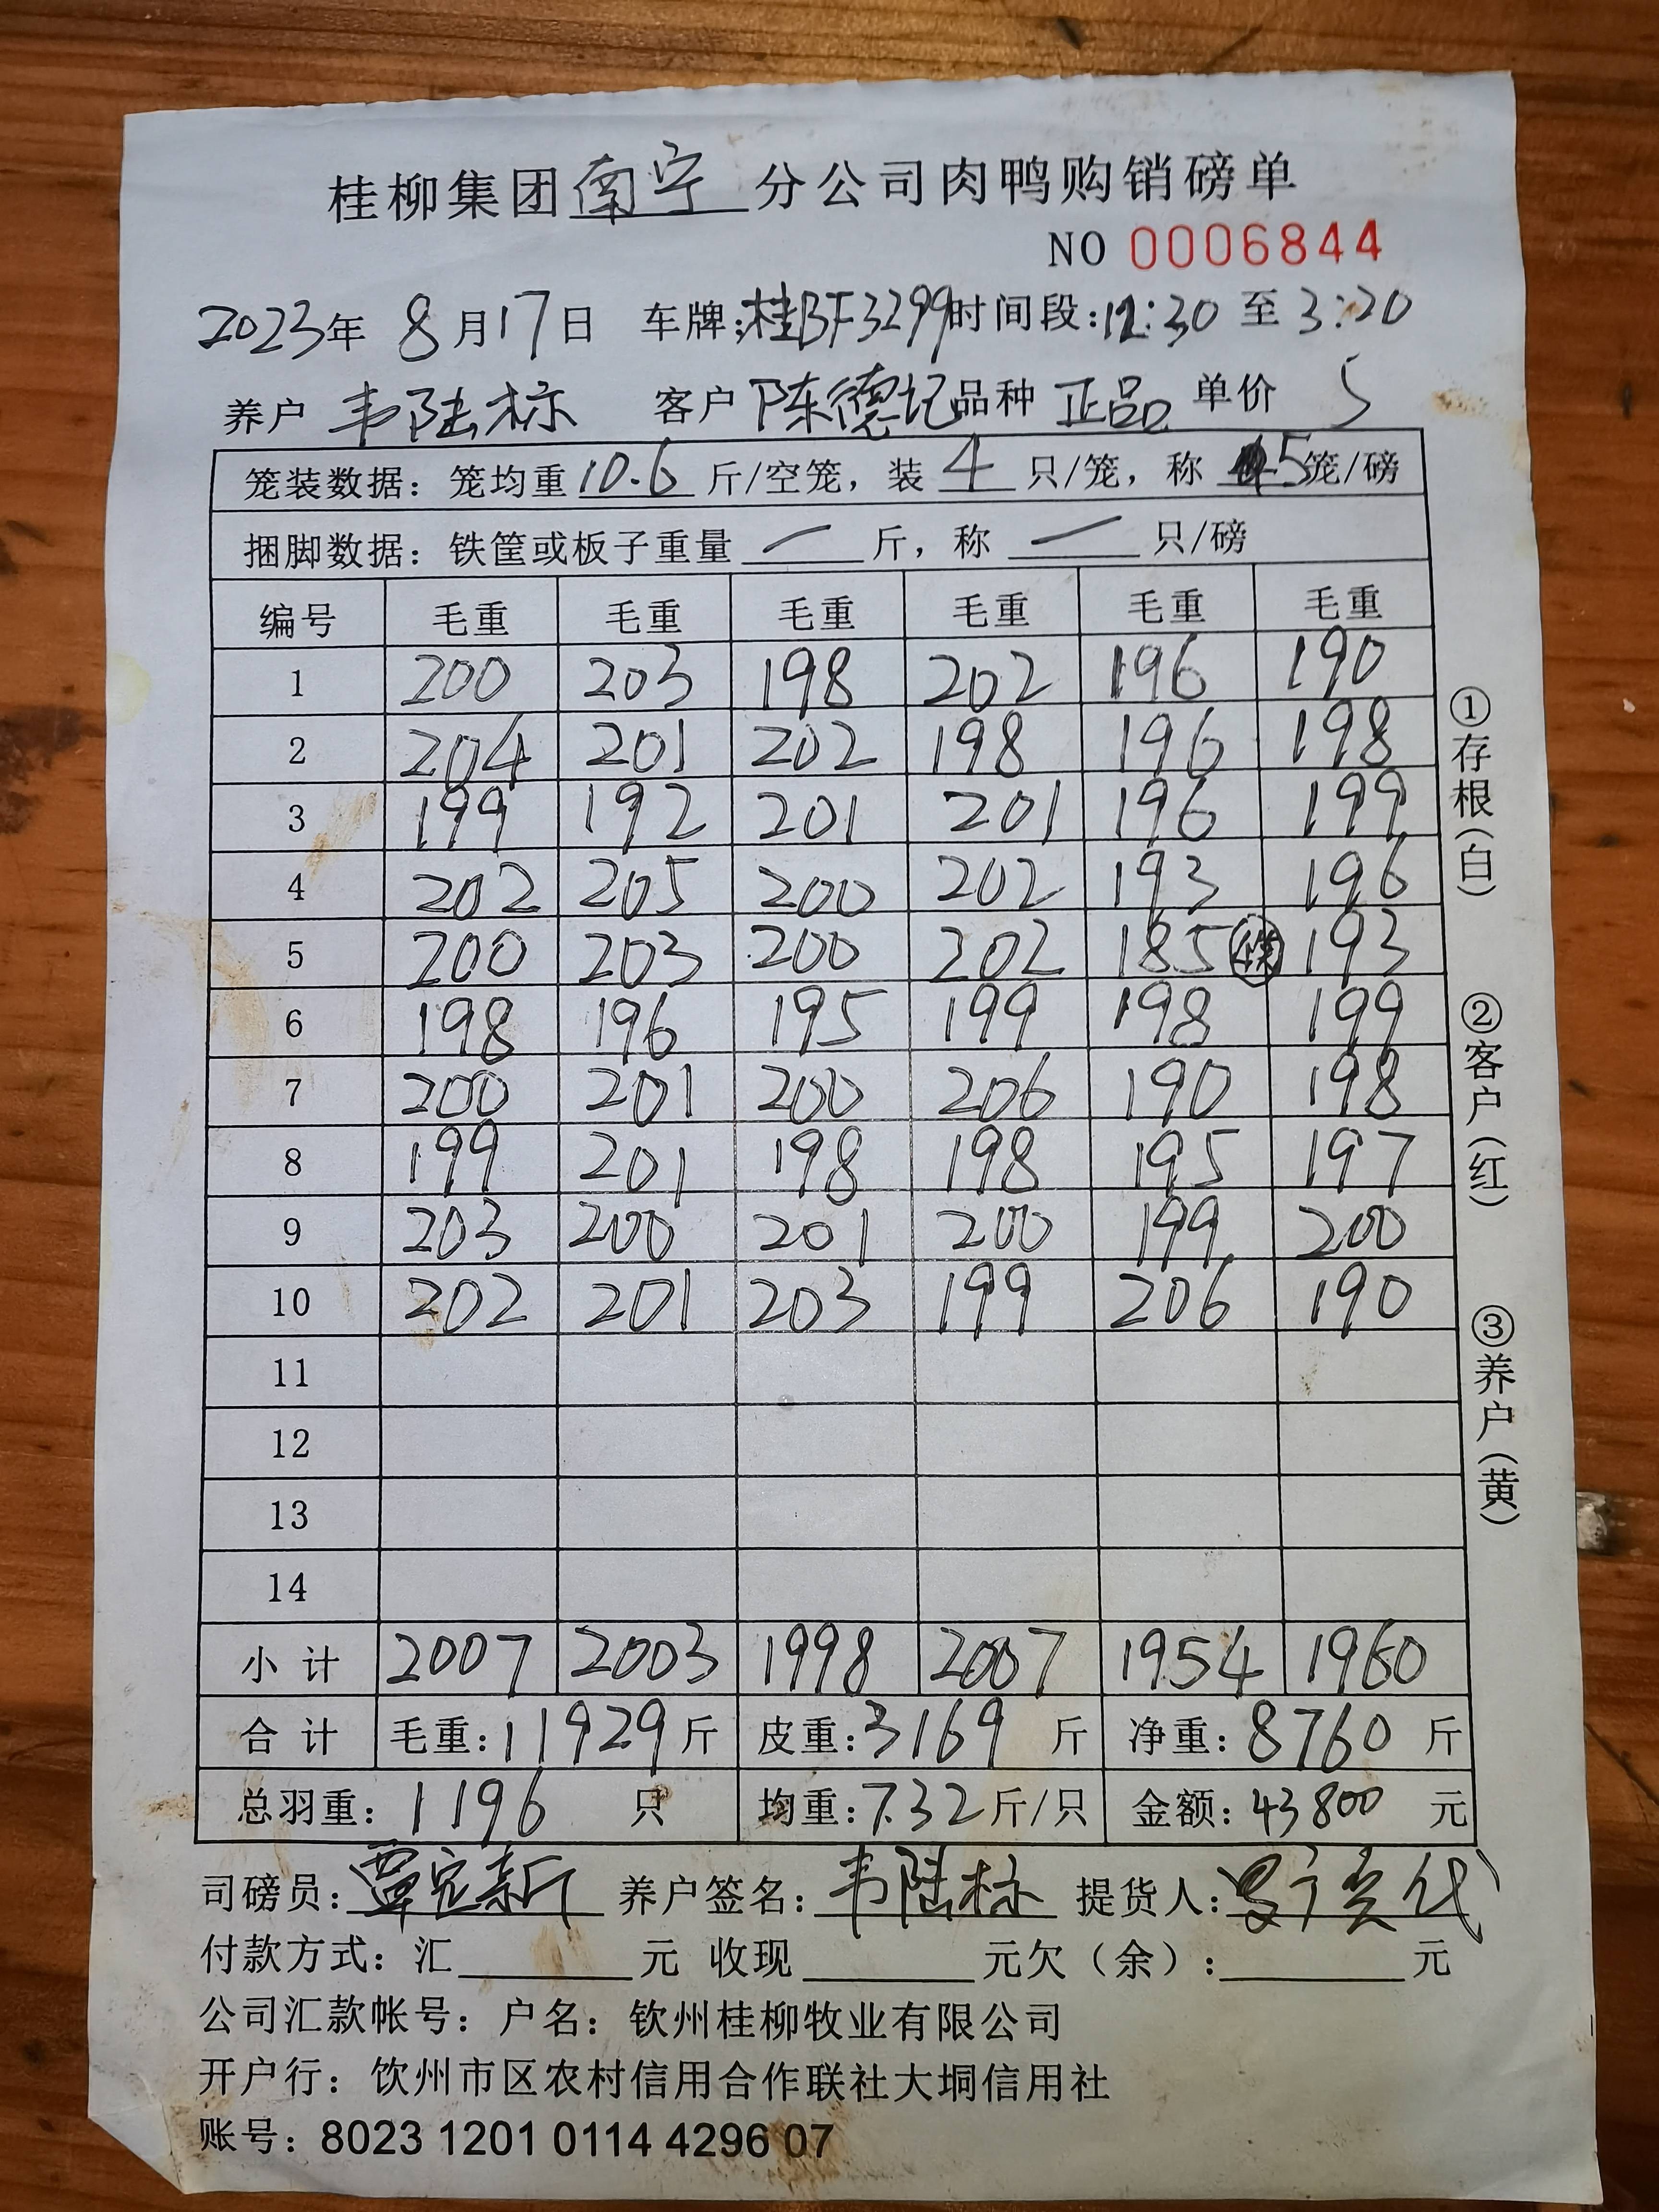 桂柳集团南宁分公司肉鸭购销磅单
NO 0006844
2023年 8月17日 车牌:桂BF3299时间段:12:30 至 3:20
养户 韦陆标 客户 陈德记 品种 正品 单价 5
笼装数据：笼均重10.6斤/空笼，装 4 只/笼，称 5笼/磅
捆脚数据：铁筐或板子重量 一 斤，称 一 只/磅
编号 毛重 毛重 毛重 毛重 毛重 毛重
1 200 203 198 202 196 190
2 204 201 202 198 196 198
3 199 192 201 201 196 199
4 202 205 200 202 193 196
5 200 203 200 202 185 193
6 198 196 195 199 198 199
7 200 201 200 206 190 198
8 199 201 198 198 195 197
9 203 200 201 200 199 200
10 202 201 203 199 206 190
11
12
13
14
小计 2007 2003 1998 2007 1954 1960
合计 毛重:11929斤 皮重:3169 斤 净重:8760 斤
总羽重:1196 只 均重:7.32斤/只 金额:43800 元
司磅员:覃定新 养户签名:韦陆标 提货人:代
付款方式：汇 元 收现 元欠（余）: 元
公司汇款帐号：户名：钦州桂柳牧业有限公司
开户行：饮州市区农村信用合作联社大垌信用社
账号：8023 1201 0114 4296 07
①存根（白）
②客户（红）
③养户（黄）